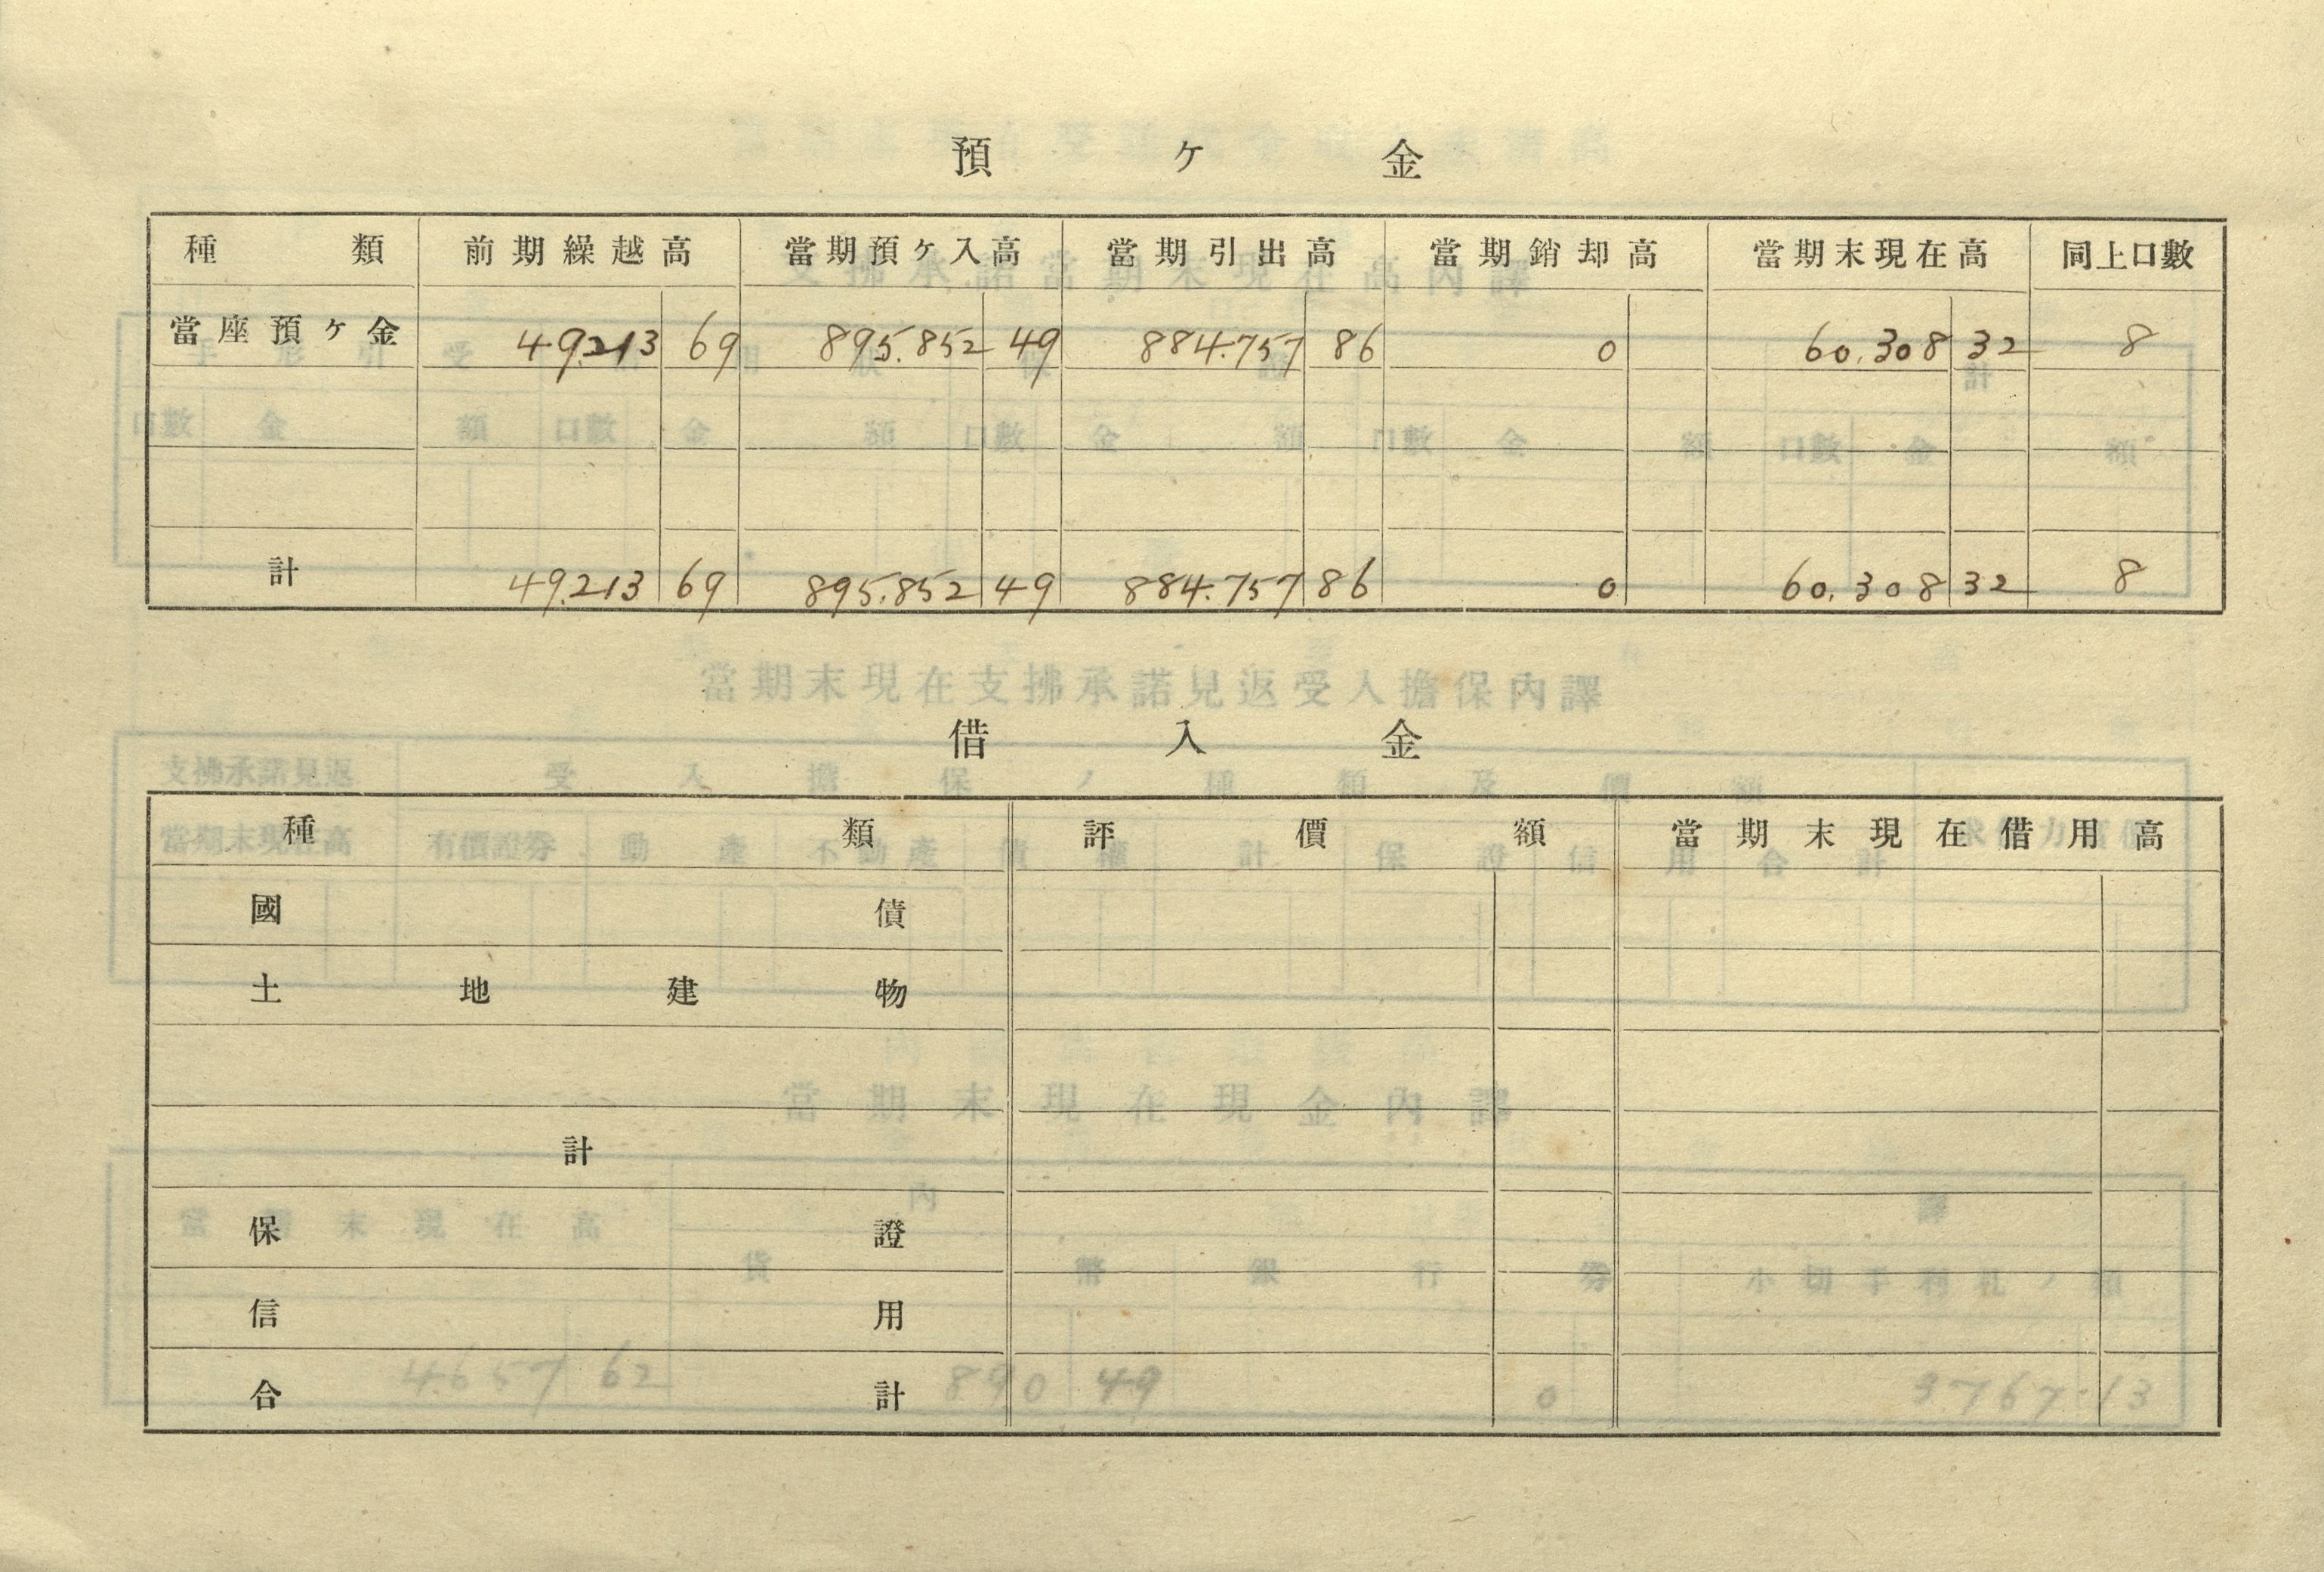 預ヶ金
種類 前期繰越高 當期預ヶ入高 當期引出高 當期銷却高 當期末現在高 同上口數
當座預ヶ金 49.213 69 895.852 49 884.757 86 0 60.308 32 8
計 49.213 69 895.852 49 884.757 86 0 60.308 32 8
借入金
種類 評價額 當期末現在借用高
國債
土地建物
計
保證
信用
合計